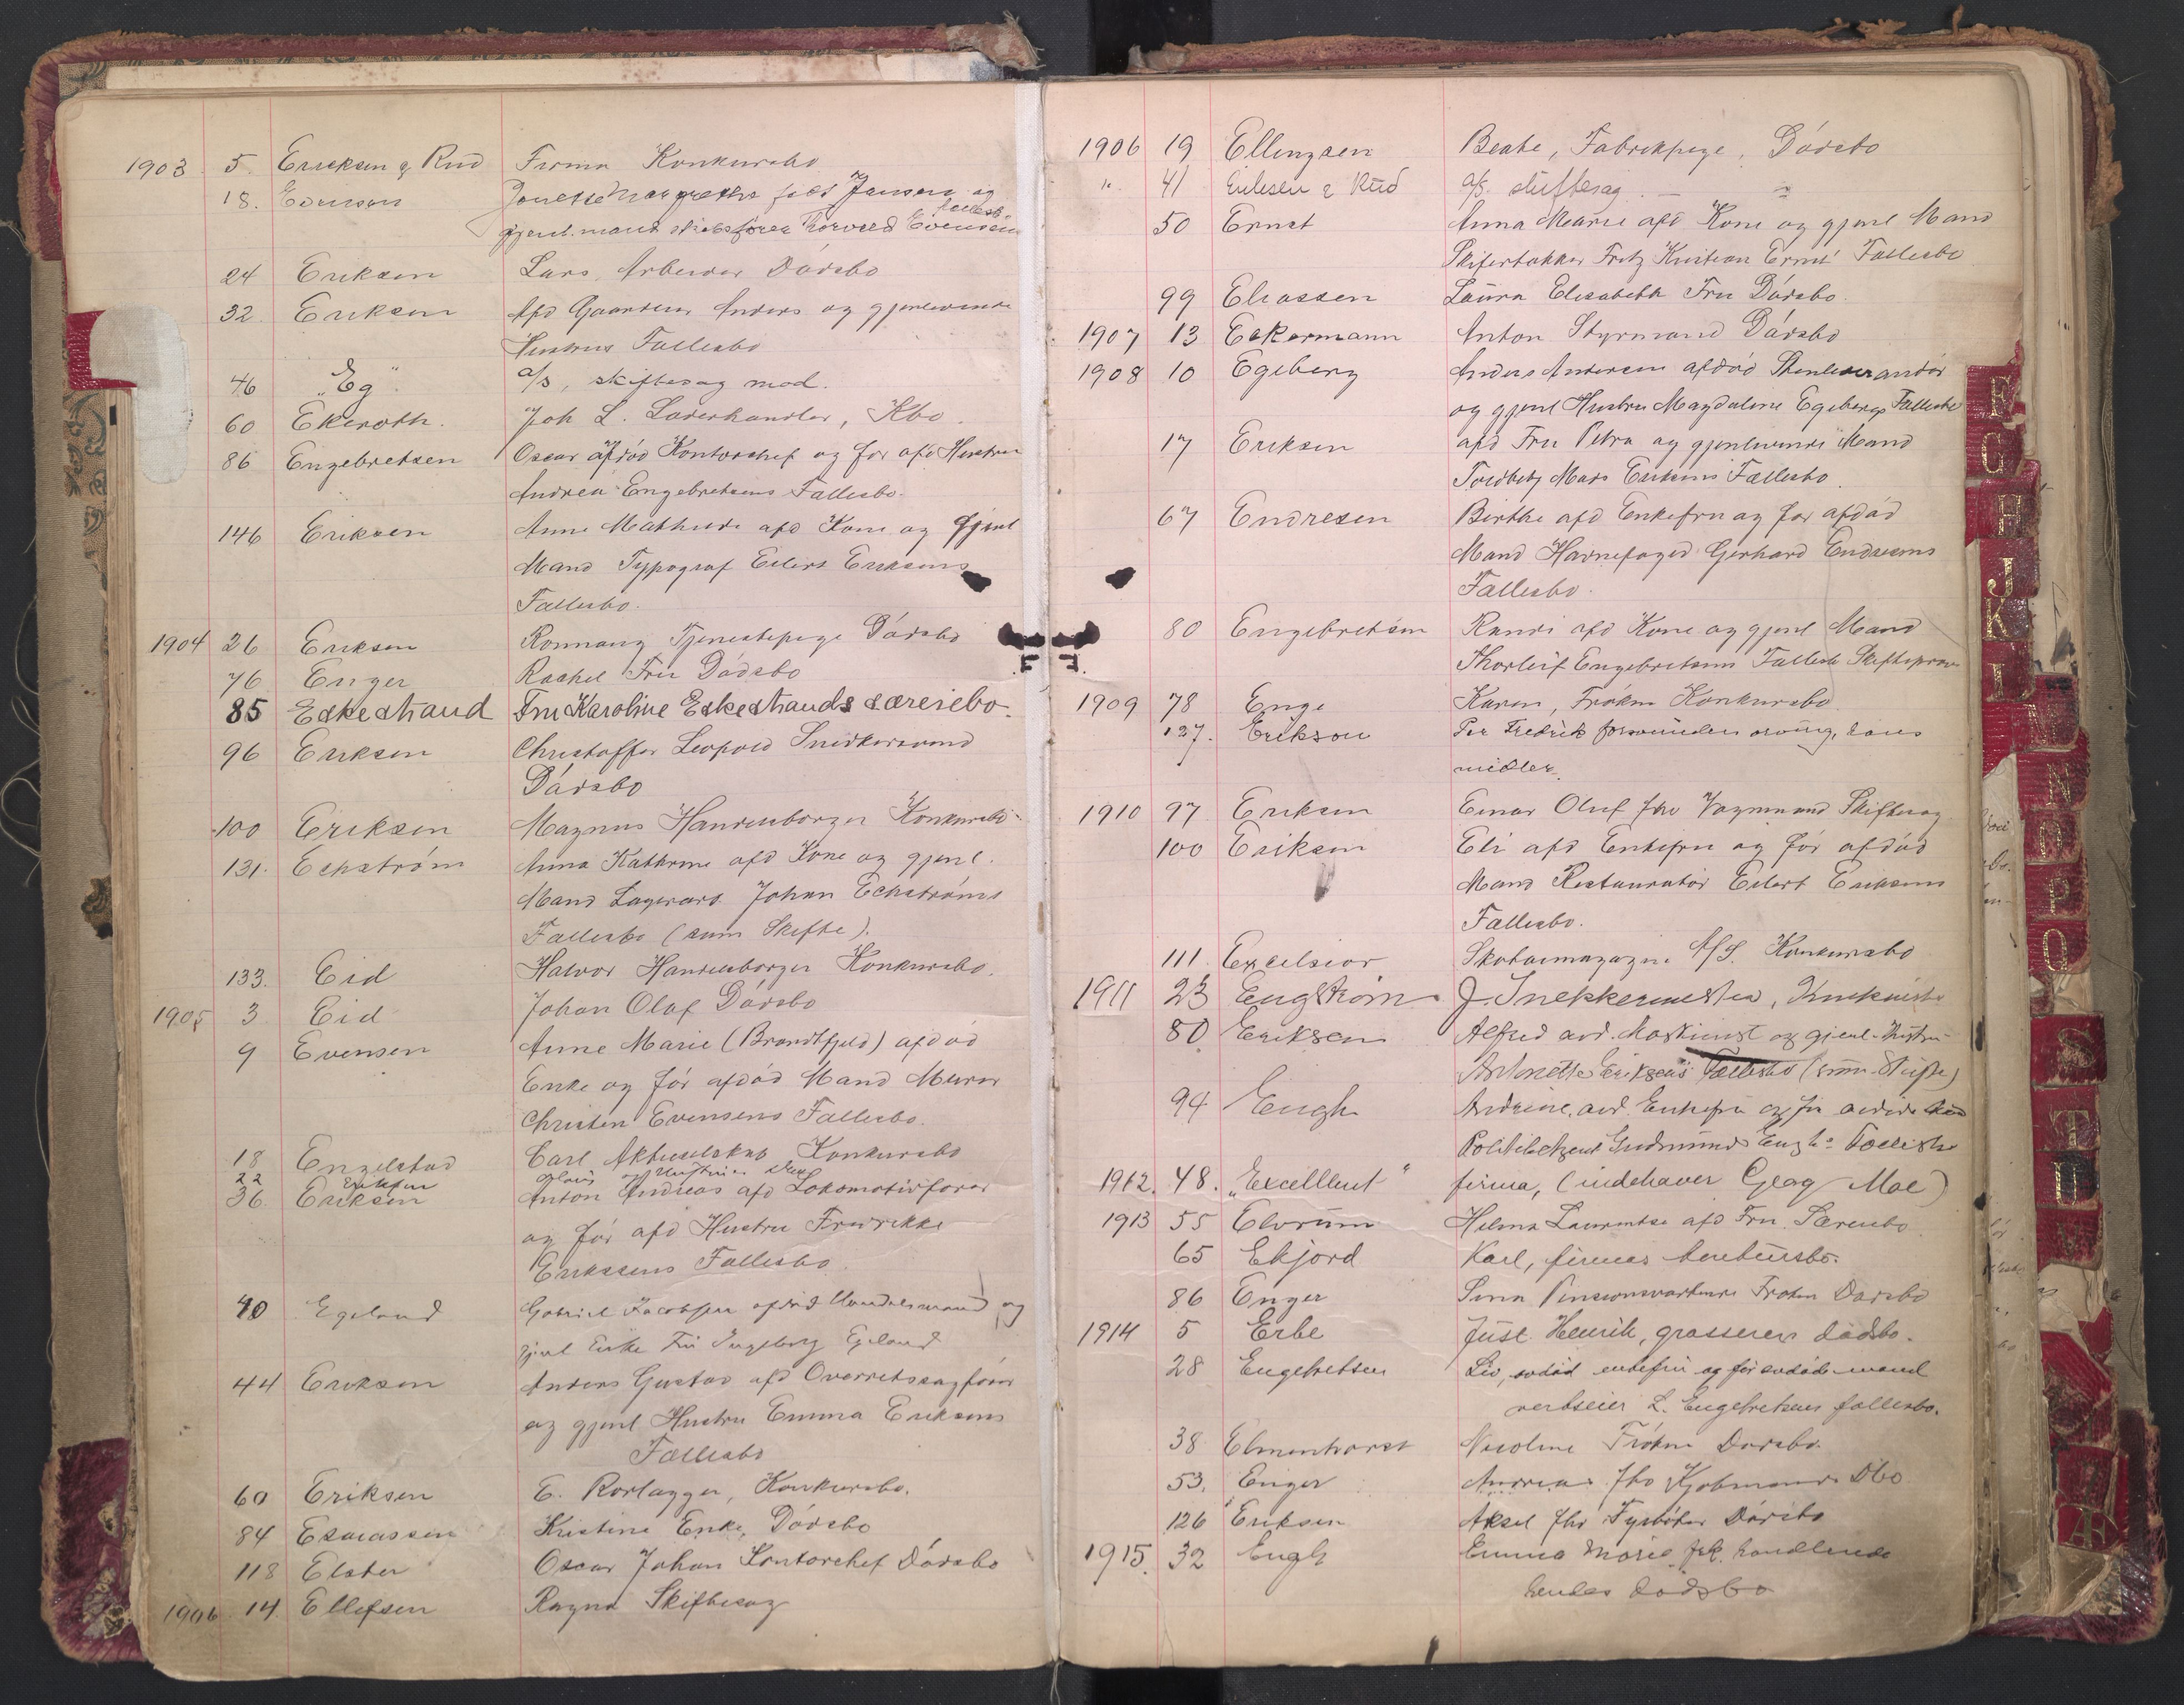 1903 5. Ericksen & Rud Firma Konkursbo
18. Evensen Jonette Margrethe født Jensen og
gjenl. mand skibsfører Thorvald Evensens fællesb.
24 Eriksen Lars, Arbeider Dödsbo
32 Eriksen Afd Gaardeier Anders og gjenlevende
Hustrus Fællesbo
46 "Eg". a/s, skiftesag mod.
60 Ekeroth. Joh L. Læderhandler, Kbo.
86 Engebretsen Oscar afdöd Kontorchef og för afd Hustru
Andrea Engebretsens Fællesbo.
146 Eriksen Anne Mathilde afd Kone og gjenl
Mand Typograf Eilert Eriksens
Fællesbo.
1904 26 Eriksen Ronnaug Tjenestepige Dödsbo
76 Enger Rachel Fru Dödsbo
85 Eskestrand Fru Karoline Eskestrands særeiebo.
96 Eriksen Christoffer Leopold Snedkersvend
Dödsbo
100 Eriksen Magnus Handelsborger Konkursbo
131. Echström Anna Kathrine afd Kone og gjenl.
Mand Lagerarb. Johan Echströms
Fællesbo (sum Skifte).
133. Eid Halvor Handelsborger Konkursbo.
1905 3 Eid Johan Olaf Dödsbo
9 Evensen Anne Marie (Brandtfjeld) afdöd
Enke og för afdöd Mand Murer
Christen Evensens Fællesbo.
18 Engelstad Carl Aktieselskab Konkursbo
22 Eriksen
36 Eriksen Anton Andreas afd Lokomotivförer
og för afd Hustru Fredrikke
Erikssens Fællesbo.
40 Egeland Gabriel Jacobsen afdöd Handelsmand og
gjenl Enke Fru Ingeborg Egeland
44 Eriksen Anders Gustav afd Overretssagförer
og gjenl Hustru Emma Eriksens
Fællesbo
60 Eriksen E. Rörlægger, Konkursbo.
84 Esaiassen Kristine Enke, Dödsbo
118 Elster Oscar Johan Kontorchef Dödsbo
1906 14. Ellefsen Ragna Skiftesag
1906 19 Ellingsen Beate, Fabrikpige, Dödsbo
" 41 Eriksen & Rud a/s. skiftesag. — "
50 Ernst Anna Marie afd Kone og gjenl Mand
Skifertækker Fritz Kristian Ernst' Fællesbo
99 Eliassen Laura Elisabeth Fru Dödsbo.
1907 13 Eckermann Anton Styrmand Dödsbo
1908 10 Egeberg Anders Andersen afdöd Stenleverandör
og gjenl Hustru Magdalene Egebergs Fællesbo
17 Eriksen afd Fru Petra og gjenlevende Mand
Mads Eriksens Fællesbo.
67 Endresen Birthe afd Enkefru og för afdöd
Mand Havnefoged Gerhard Endresens
Fællesbo.
80 Engebretsen Randi afd Kone og gjenl Mand
Thorleif Engebretsens Fællesb Skifteprov
1909 78 Enge Karen, Fröken Konkursbo.
127. Erikson Per Fredrik forsvunden arving, hans
midler.
1910 97 Eriksen Einar Oluf Fhv Vognmand Skiftesag
100 Eriksen Eli afd Enkefru og för afdöd
Mand Restauratör Eilert Eriksens
Fællesbo.
111. Excelsior Skotöimagazin A/S. Konkursbo
1911 23 Engström J. Snekkermester, Konkursbo
80 Eriksen Alfred avd. Maskinist og gjenl. Hustru
Antonette Eriksens Fællesbo (sum. Skifte)
94 Engh Andrine, avd. Enkefru og for avdøde
Politibetjent Gudmund Enghs Fællesbo
1912. 48. "Excelllent" firma, (indehaver Georg Moe)
1913 55 Elvrum Helma Lauentse afd Fru. Særeiebo
65 Ekjord Karl, firmas konkursbo.
86 Enger Sina Pensionsværtinde Fröken Dödsbo
1914 5 Erbe Just Henrik, grosserer dødsbo.
28 Engebretsen Liv, avdød enkefru og før avdøde mand
verkseier L. Engebretsens fællesbo.
38 Elmenhorst Nicoline Fröken Dödsbo.
53. Enger Andreas Fhv Kjöbmand Dbo
126 Eriksen Aksel Fhv Fyrböter Dödsbo
1915. 32 Engh Emma Marie, frk. handlende
hendes dødsbo
F
G
H
J
K
L
M
N
O
P
Q
S
T
U
W
Z
Æ